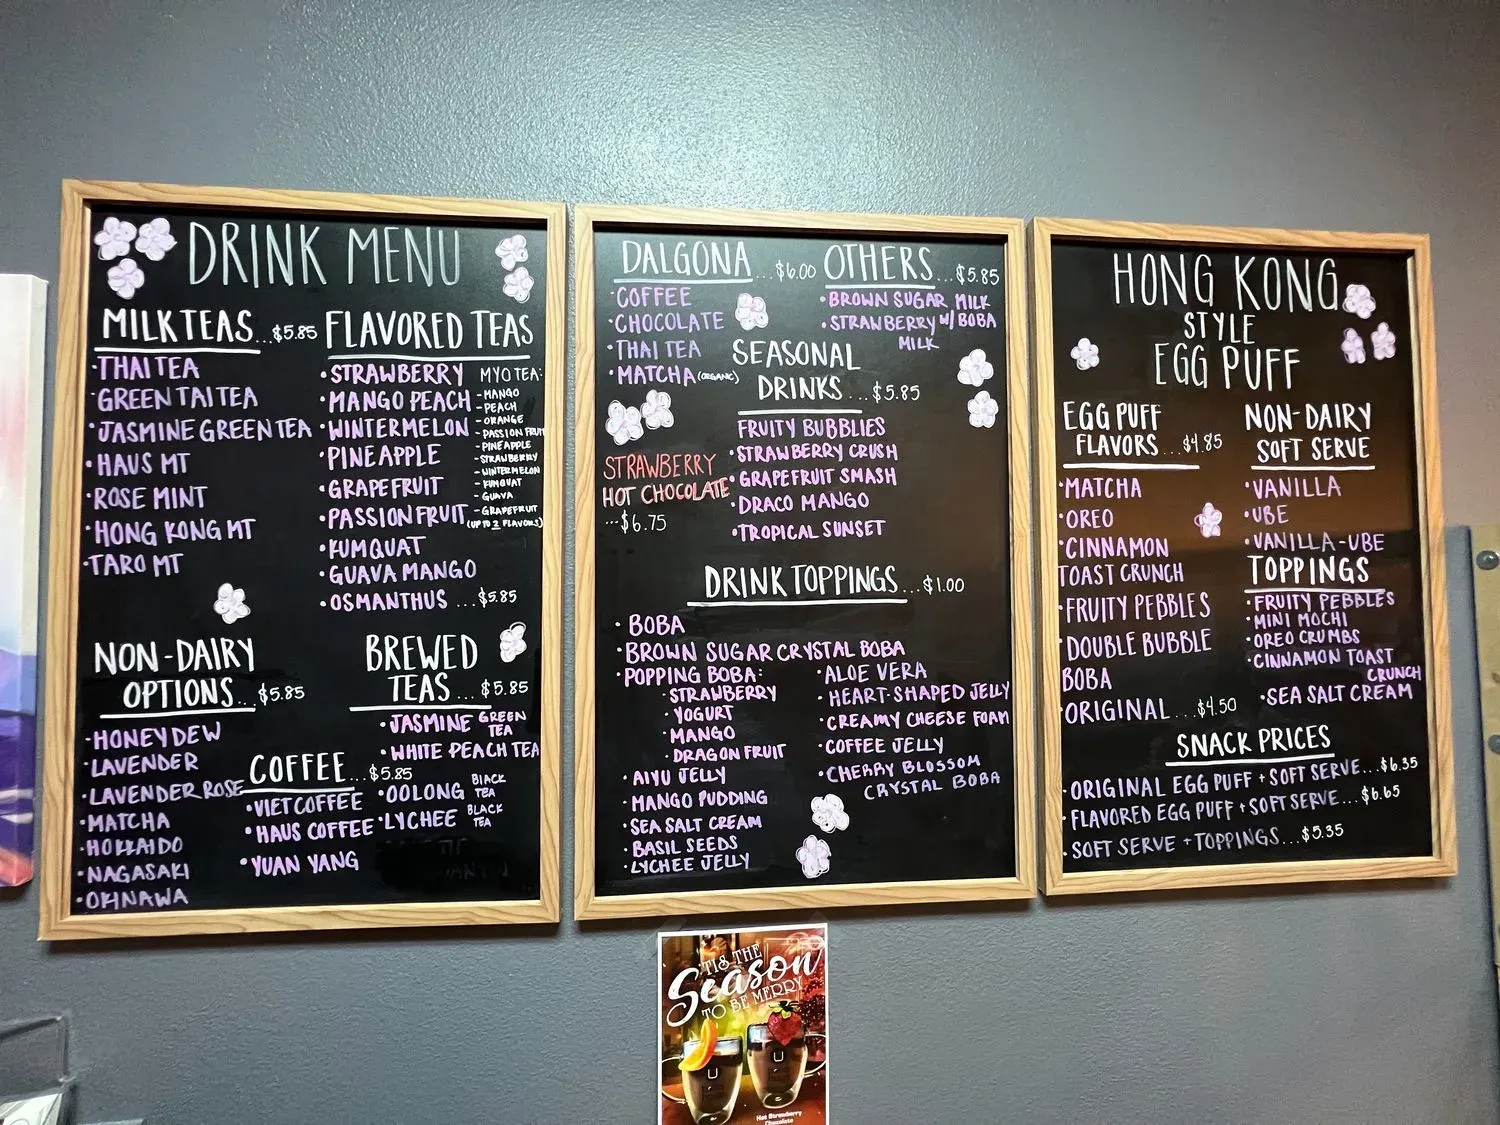 DRINK MENU
MILK TEAS...$5.85
·THAI TEA
·GREEN TAI TEA
·JASMINE GREEN TEA
·HAUS MT
·ROSE MINT
·HONG KONG MT
·TARO MT
FLAVORED TEAS
·STRAWBERRY
·MANGO PEACH
·WINTERMELON
·PINEAPPLE
·GRAPEFRUIT
·PASSIONFRUIT
·KUMQUAT
·GUAVA MANGO
·OSMANTHUS ...$5.85
MYO TEA:
-MANGO
-PEACH
-ORANGE
-PASSION FRUIT
-PINEAPPLE
-STRAWBERRY
-WINTERMELON
-KUMQUAT
-GUAVA
-GRAPEFRUIT
(UP TO 2 FLAVORS)
NON-DAIRY
OPTIONS...$5.85
·HONEYDEW
·LAVENDER
·LAVENDER ROSE
·MATCHA
·HOKKAIDO
·NAGASAKI
·OKINAWA
COFFEE...$5.85
·VIET COFFEE
·HAUS COFFEE
·YUAN YANG
BREWED
TEAS...$5.85
·JASMINE GREEN
TEA
·WHITE PEACH TEA
·OOLONG BLACK
TEA
·LYCHEE BLACK
TEA
DALGONA...$6.00
·COFFEE
·CHOCOLATE
·THAI TEA
·MATCHA (ORGANIC)
OTHERS...$5.85
·BROWN SUGAR MILK
W/ BOBA
·STRAWBERRY
MILK
SEASONAL
DRINKS...$5.85
FRUITY BUBBLIES
·STRAWBERRY CRUSH
·GRAPEFRUIT SMASH
·DRACO MANGO
·TROPICAL SUNSET
STRAWBERRY
HOT CHOCOLATE
...$6.75
DRINK TOPPINGS...$1.00
·BOBA
·BROWN SUGAR CRYSTAL BOBA
·POPPING BOBA:
·STRAWBERRY
·YOGURT
·MANGO
·DRAGON FRUIT
·AIYU JELLY
·MANGO PUDDING
·SEA SALT CREAM
·BASIL SEEDS
·LYCHEE JELLY
·ALOE VERA
·HEART-SHAPED JELLY
·CREAMY CHEESE FOAM
·COFFEE JELLY
·CHERRY BLOSSOM
CRYSTAL BOBA
HONG KONG
STYLE
EGG PUFF
EGG PUFF
FLAVORS...$4.85
·MATCHA
·OREO
·CINNAMON
TOAST CRUNCH
·FRUITY PEBBLES
·DOUBLE BUBBLE
BOBA
·ORIGINAL...$4.50
NON-DAIRY
SOFT SERVE
·VANILLA
·UBE
·VANILLA-UBE
TOPPINGS
·FRUITY PEBBLES
·MINI MOCHI
·OREO CRUMBS
·CINNAMON TOAST
CRUNCH
·SEA SALT CREAM
SNACK PRICES
·ORIGINAL EGG PUFF + SOFT SERVE...$6.35
·FLAVORED EGG PUFF + SOFT SERVE...$6.65
·SOFT SERVE + TOPPINGS...$5.35
'TIS THE
Season
TO BE MERRY
Hot Strawberry
Chocolate